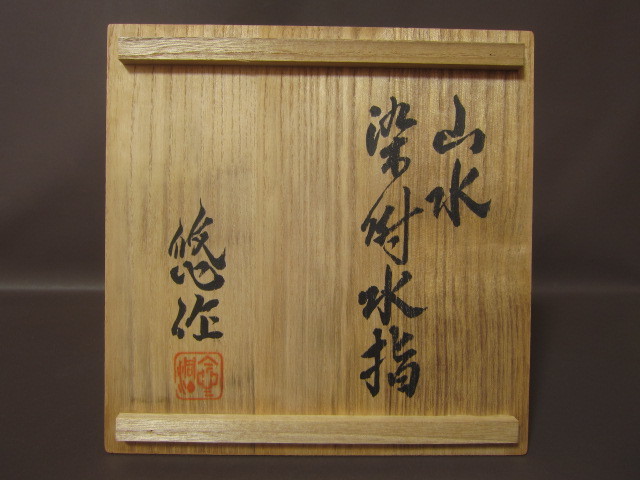 山水
染付水指
悠作